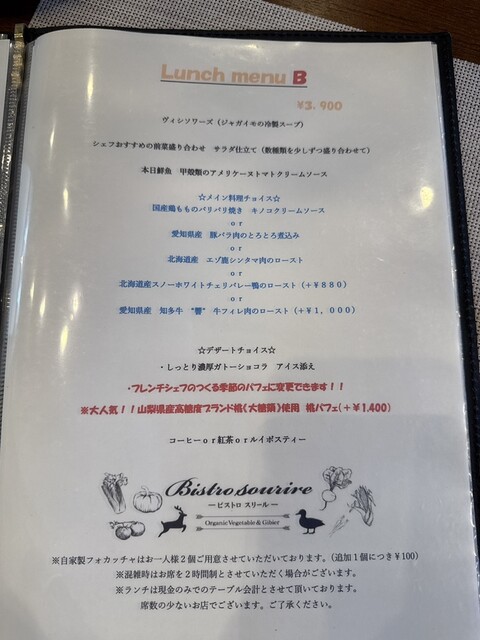 Lunch menu B
¥3,900
ヴィシソワーズ（ジャガイモの冷製スープ）
シェフおすすめの前菜盛り合わせ　サラダ仕立て（数種類を少しずつ盛り合わせて）
本日鮮魚　甲殻類のアメリケーヌトマトクリームソース
☆メイン料理チョイス☆
国産鶏もものパリパリ焼き　キノコクリームソース
or
愛知県産　豚バラ肉のとろとろ煮込み
or
北海道産　エゾ鹿シンタマ肉のロースト
or
北海道産スノーホワイトチェリバレー鴨のロースト（＋￥８８０）
or
愛知県産　知多牛　“響”　牛フィレ肉のロースト（＋￥１，０００）
☆デザートチョイス☆
・しっとり濃厚ガトーショコラ　アイス添え
・フレンチシェフのつくる季節のパフェに変更できます！！
※大人気！！山梨県産高糖度ブランド桃《大糖領》使用　桃パフェ（＋￥1,400）
コーヒーｏｒ紅茶ｏｒルイボスティー
Bistro sourire
―ビストロ スリール―
Organic Vegetable & Gibier
※自家製フォカッチャはお一人様２個ご用意させていただいております。（追加１個につき¥100）
※混雑時はお席を２時間制とさせていただく場合がございます。
※ランチは現金のみでのテーブル会計とさせて頂いております。
席数の少ないお店でございます。ご了承ください。